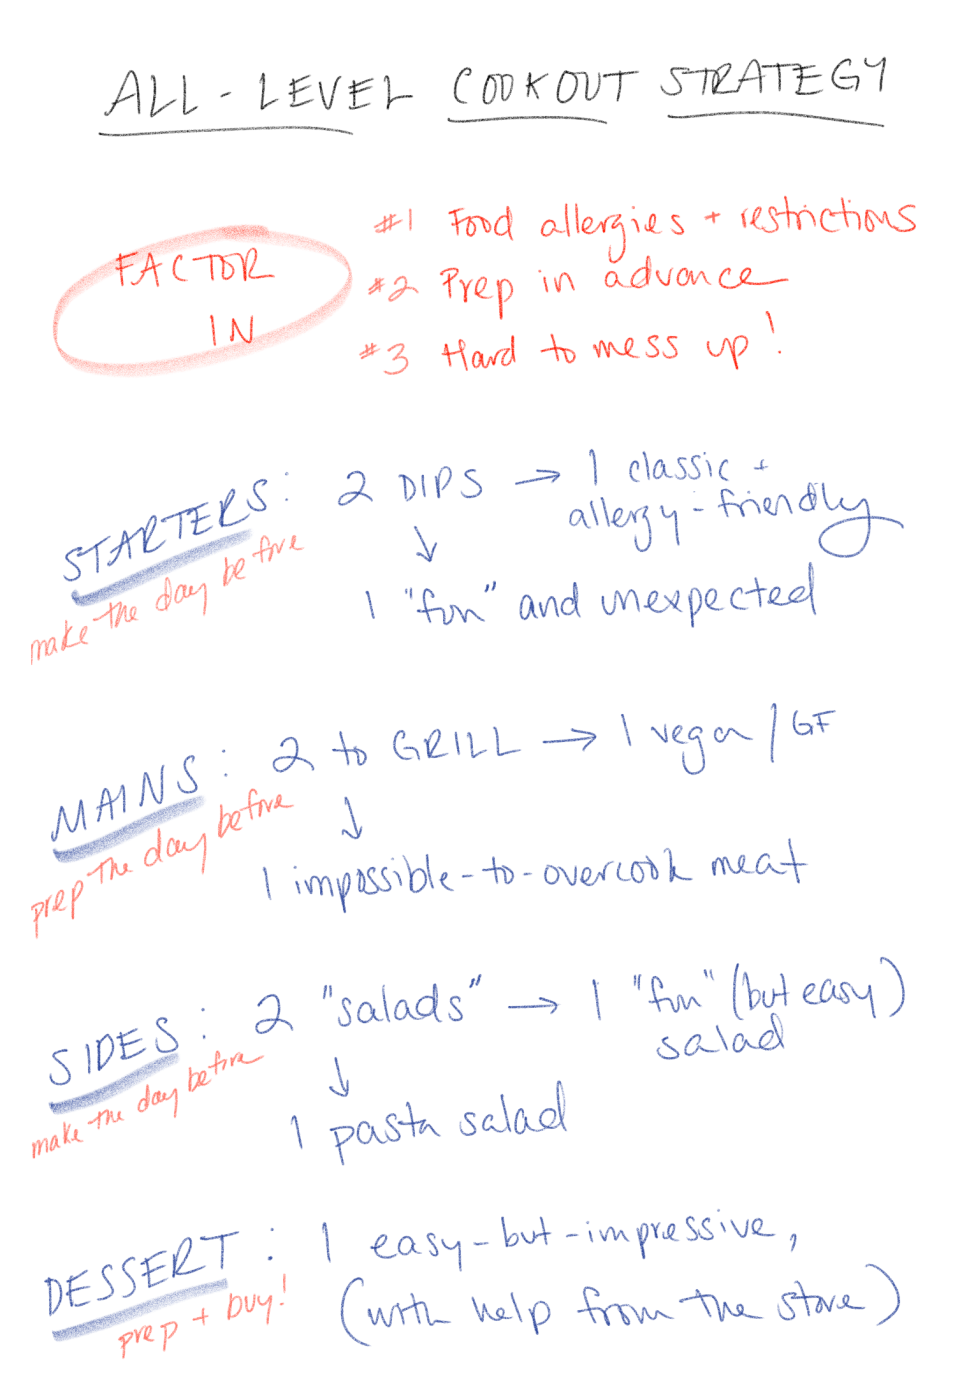 ALL-LEVEL COOKOUT STRATEGY
FACTOR
IN
#1 Food allergies + restrictions
#2 Prep in advance
#3 Hard to mess up!
STARTERS: 2 DIPS → 1 classic +
allergy-friendly
make the day before
↓
1 "fun" and unexpected
MAINS: 2 to GRILL → 1 vegan / GF
prep the day before
↓
1 impossible-to-overcook meat
SIDES: 2 "salads" → 1 "fun" (but easy)
salad
make the day before
↓
1 pasta salad
DESSERT: 1 easy-but-impressive,
prep + buy!
(with help from the store)